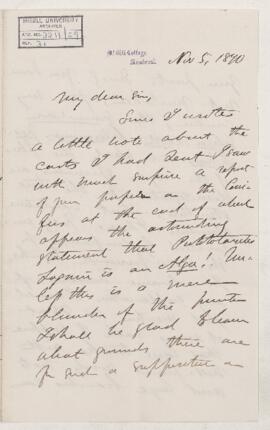 McGILL UNIVERSITY
ARCHIVES
ACC. NO.
REF.
McGill College
Montreal
Nov 5, 1890
My dear Sir,
Since I wrote
a little note about the
casts I had sent I saw
with much surprise a report
of your paper on the
at the end of which
appears the astounding
statement that Prototaxites
Logani is an Alga! Un-
less this is a mere
blunder of the printer
I shall be glad to learn
what grounds there are
for such a supposition